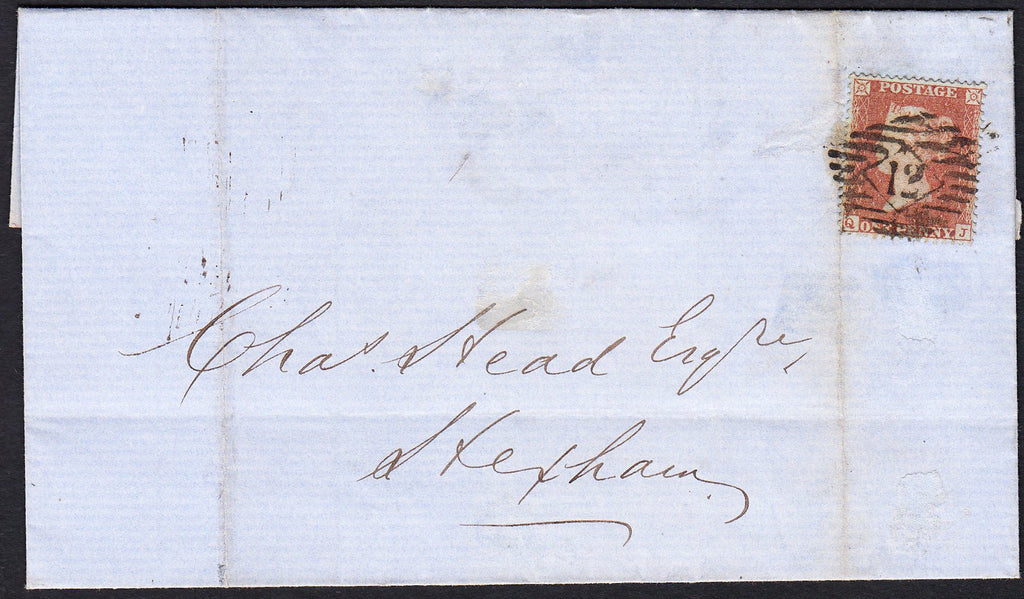 POSTAGE
12
Q ONE PENNY J
Chas. Head Esqre,
Hexham